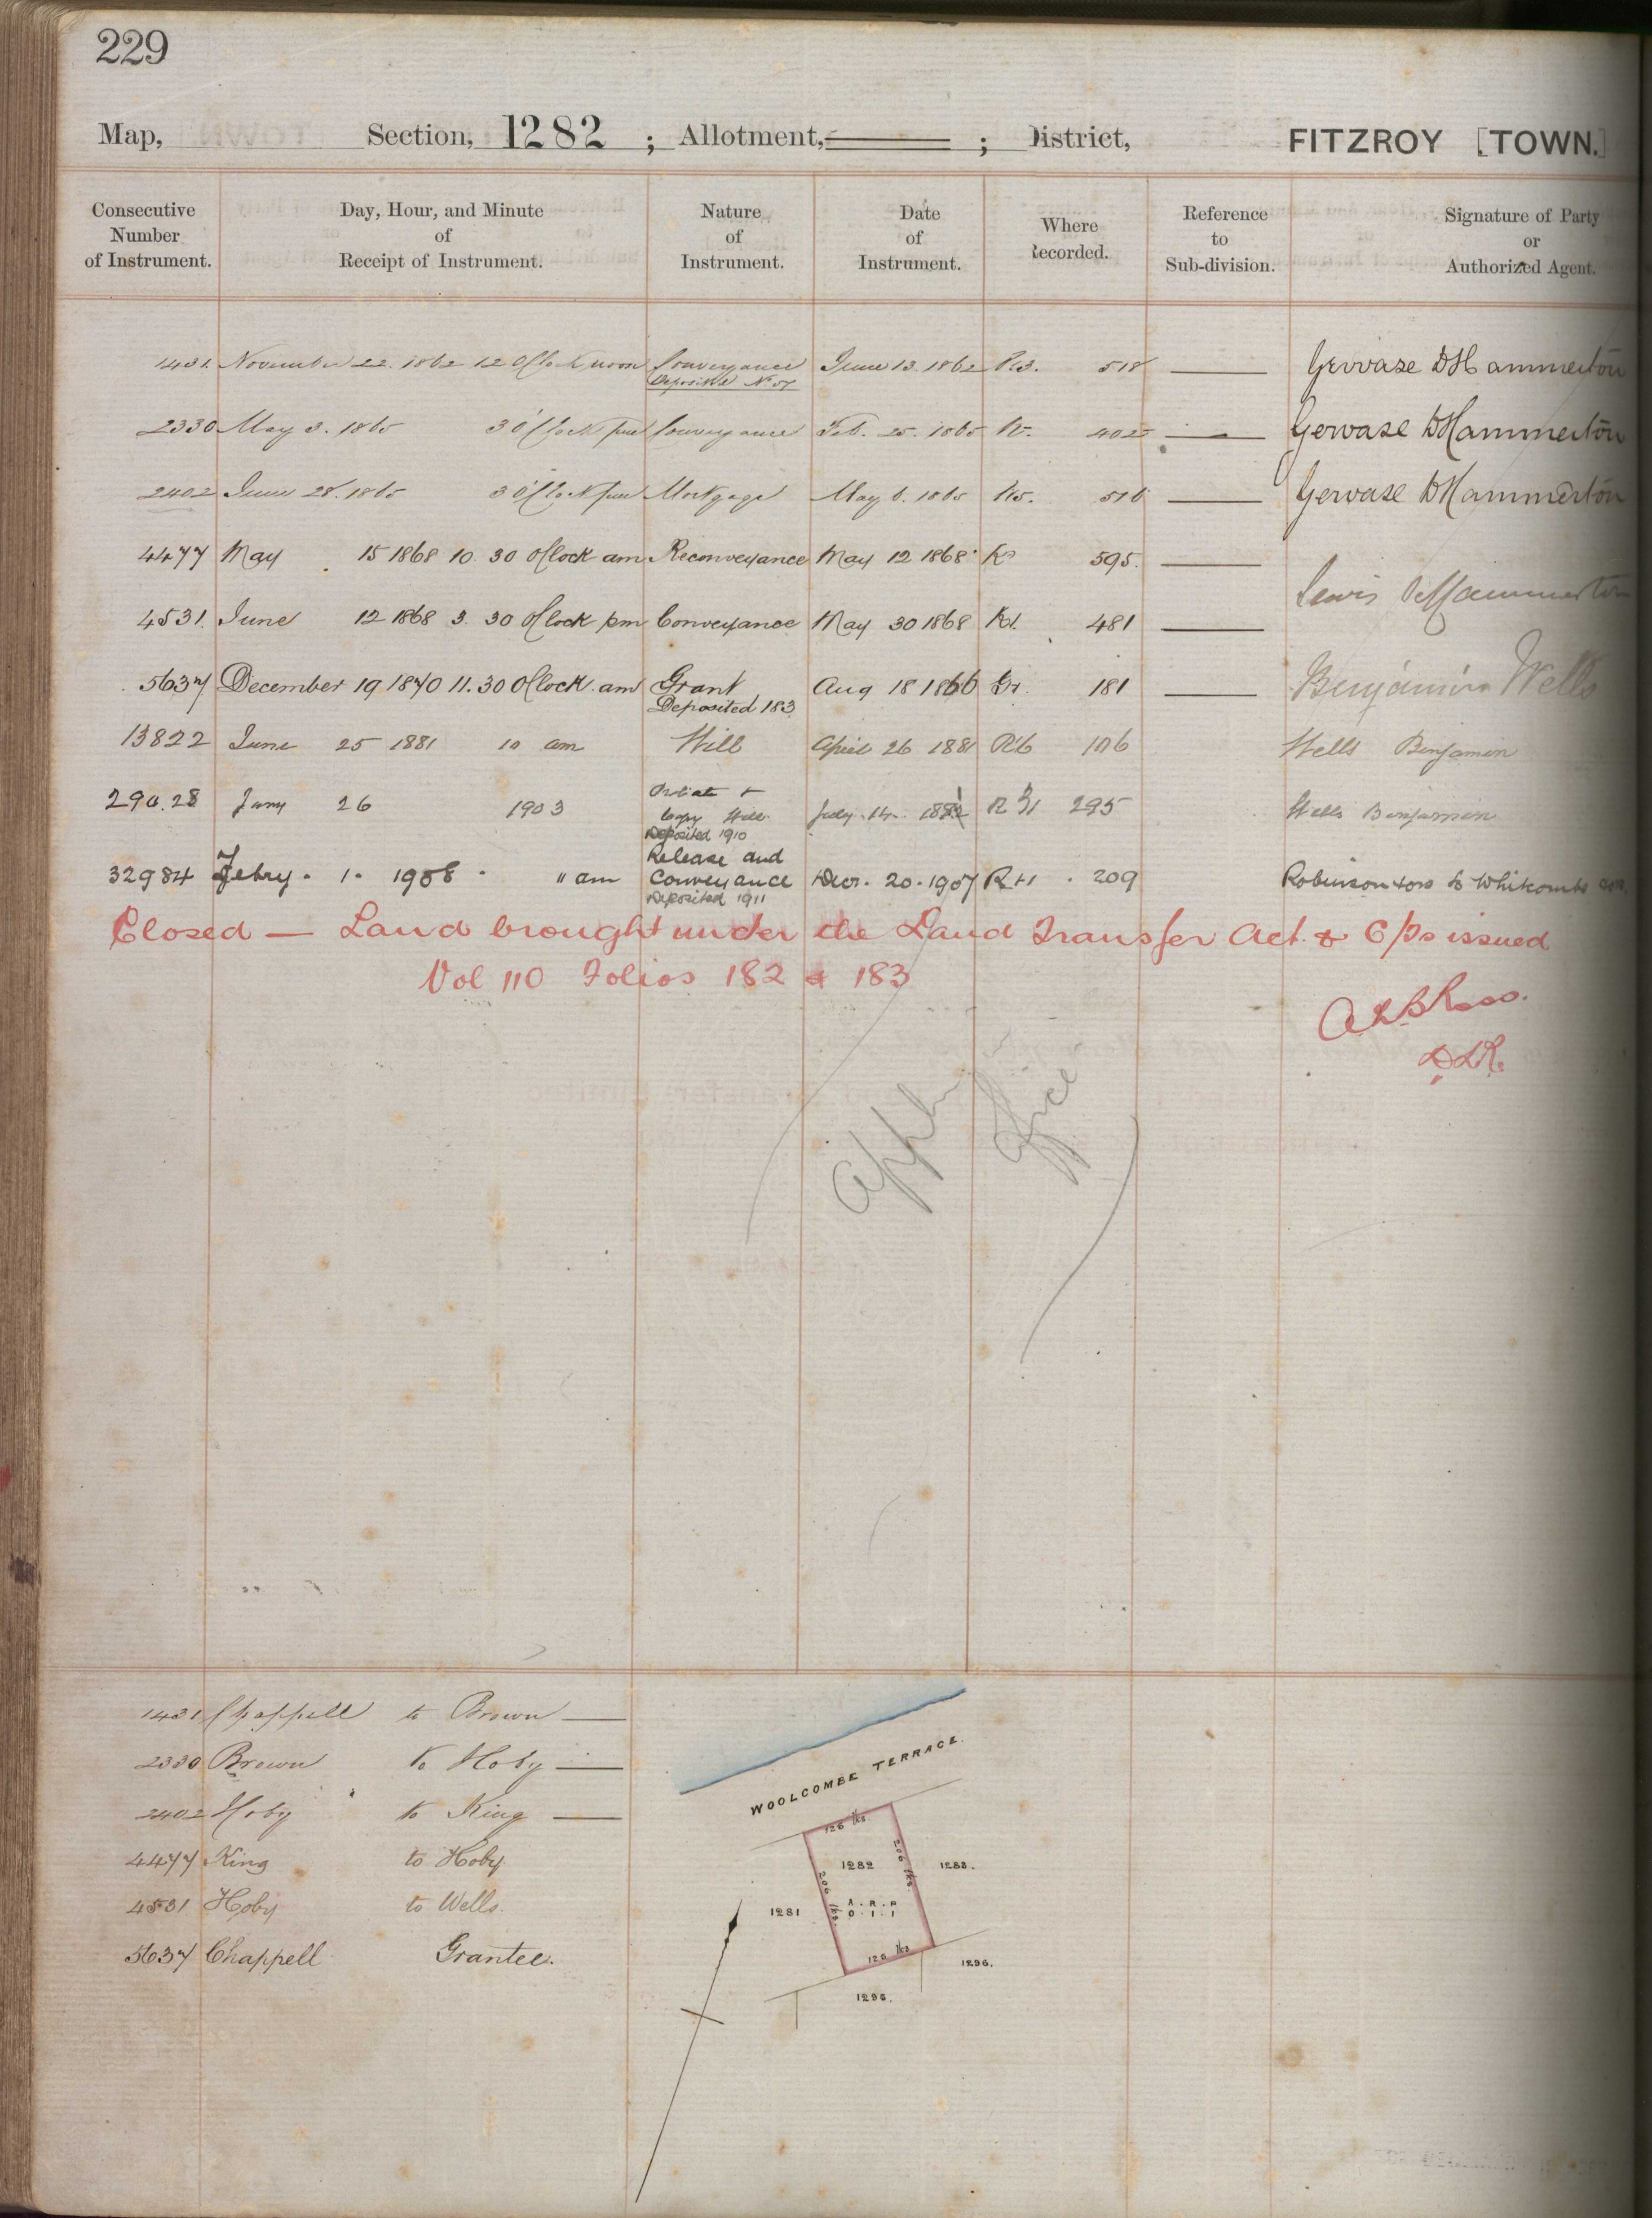 229
Map, Section, 1282 ; Allotment, ; District, FITZROY [TOWN.]
Consecutive Number of Instrument. Day, Hour, and Minute of Receipt of Instrument. Nature of Instrument. Date of Instrument. Where Recorded. Reference to Sub-division. Signature of Party or Authorized Agent.
1431. November 22. 1862 12 O'Clock noon Conveyance June 13. 1862 R3. 518 Gervase D Hammerton
Deposited No 57
2330 May 3. 1865 3 O'Clock pm Conveyance Feb. 25. 1865 402 Gervase D Hammerton
2402 June 28. 1865 3 O'Clock pm Mortgage May 6. 1865 R5. 516 Gervase D Hammerton
4477 May 15 1868 10. 30 O'Clock am Reconveyance May 12 1868 595.
4531. June 12 1868 3. 30 O'Clock pm Conveyance May 30 1868 481 Lewis Hammerton
5637 December 19 1870 11. 30 O'Clock am Grant Aug 18 1866 Gr. 181 Benjamin Wells
Deposited 183
13822 June 25 1881 10 am Will April 26 1881 R16 106 Wells Benjamin
29028 Jany 26 1903 Probate + copy Will July 14 R 31 295 Wells Benjamin
Deposited 1910
32984 Febry. 1. 1908 " am Release and Conveyance Decr. 20. 1907 R41 209 Robinson & ors to Whitcombe
Deposited 1911
Closed — Land brought under the Land Transfer Act & C/Ts issued
Vol 110 Folios 182 & 183
D.L.R.
Appln
Office
1431 Chappell to Brown
2330 Brown to Hoby
2402 Hoby to King
4477 King to Hoby
4531 Hoby to Wells.
5637 Chappell Grantee.
WOOLCOMBE TERRACE.
125 lks.
200 lks.
1282
1283.
200 lks.
1281
A. R. P
0. 1. 1
125 lks
1296.
1295.